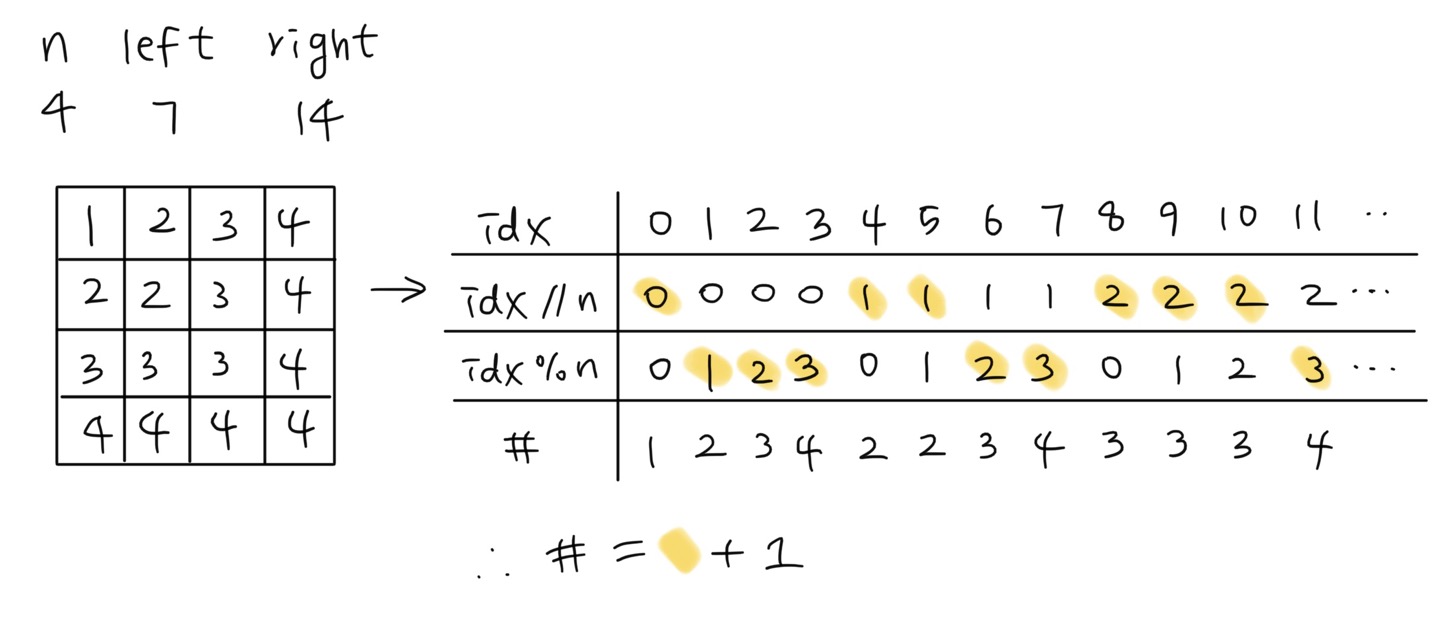 n left right
4 7 14
1 2 3 4
2 2 3 4
3 3 3 4
4 4 4 4
→
idx 0 1 2 3 4 5 6 7 8 9 10 11 ..
idx // n 0 0 0 0 1 1 1 1 2 2 2 2 ...
idx % n 0 1 2 3 0 1 2 3 0 1 2 3 ...
# 1 2 3 4 2 2 3 4 3 3 3 4
∴ # = + 1